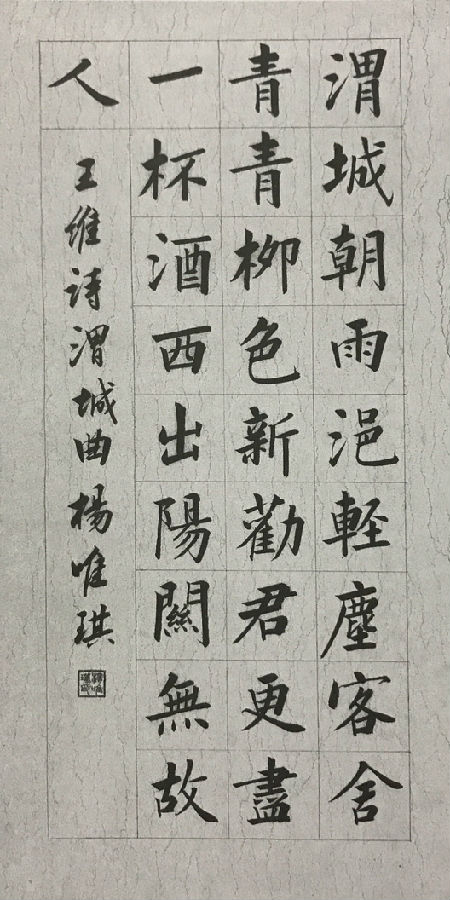 渭城朝雨浥軽塵客舍
青青柳色新勸君更盡
一杯酒西出陽關無故
人
王维诗渭城曲楊唯琪